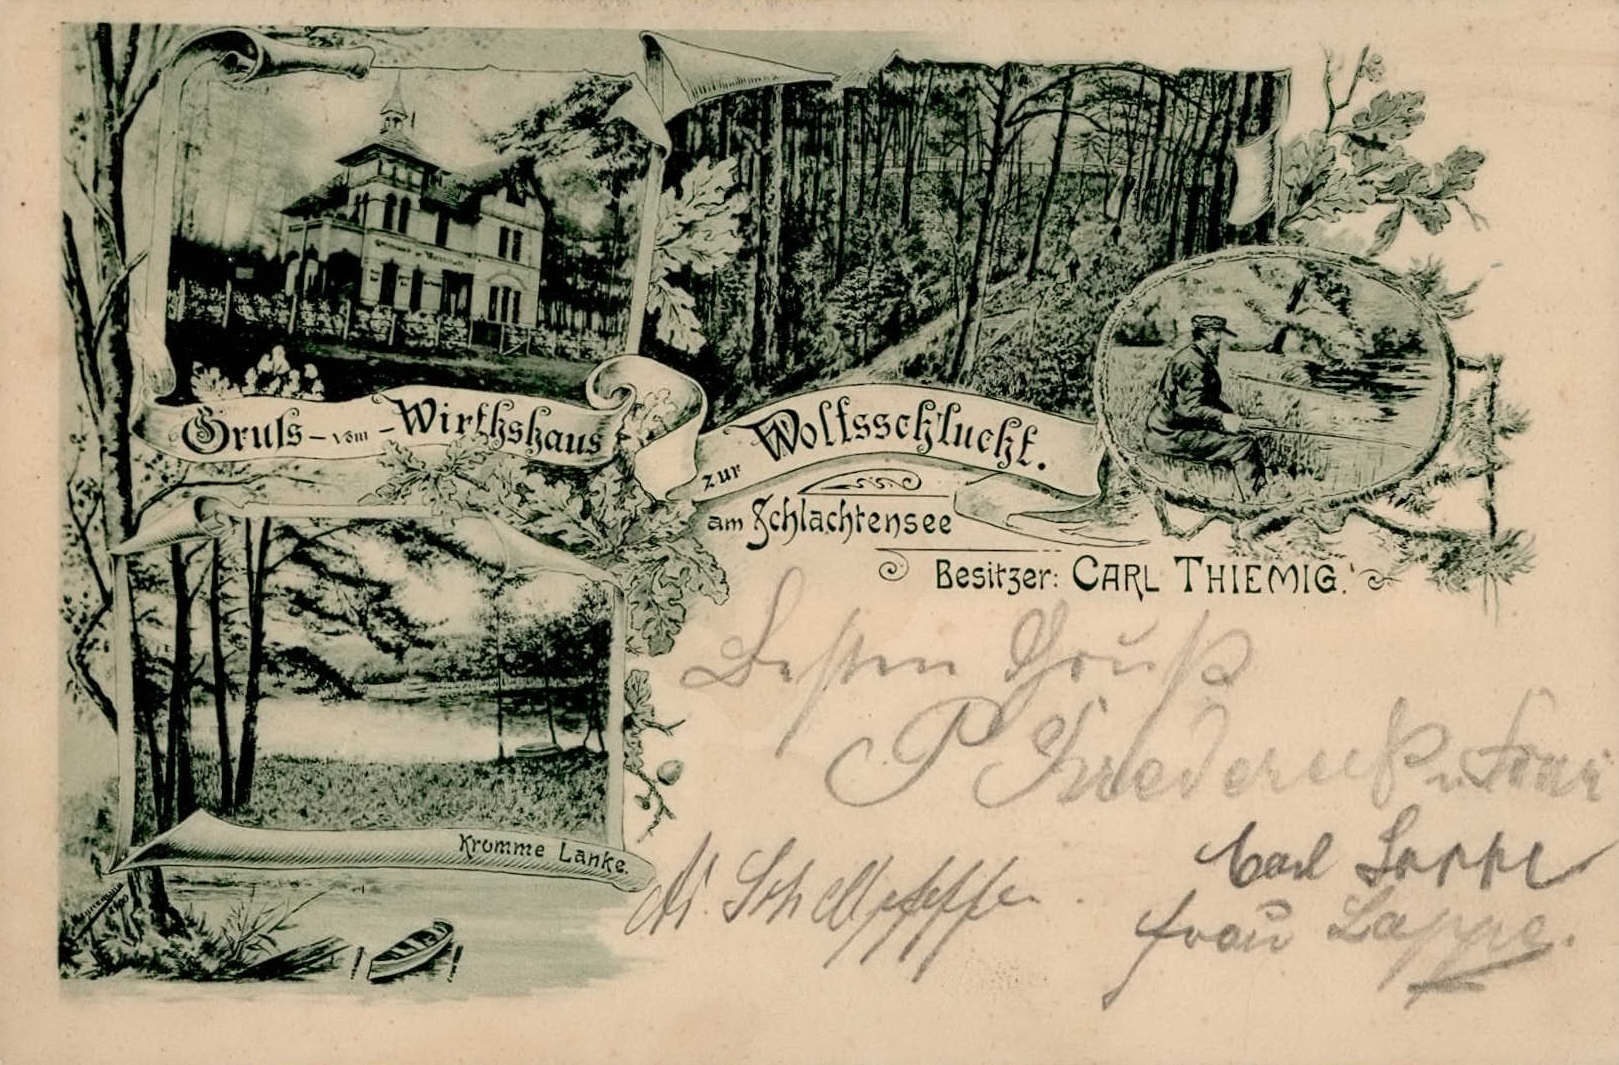 Gruſs - vom - Wirthshaus
zur Wolfsschlucht.
am Schlachtensee
Besitzer: CARL THIEMIG.
Krumme Lanke.
Besten Gruß
P Friederuß u. Frau
Carl Lappe
Frau Lappe.